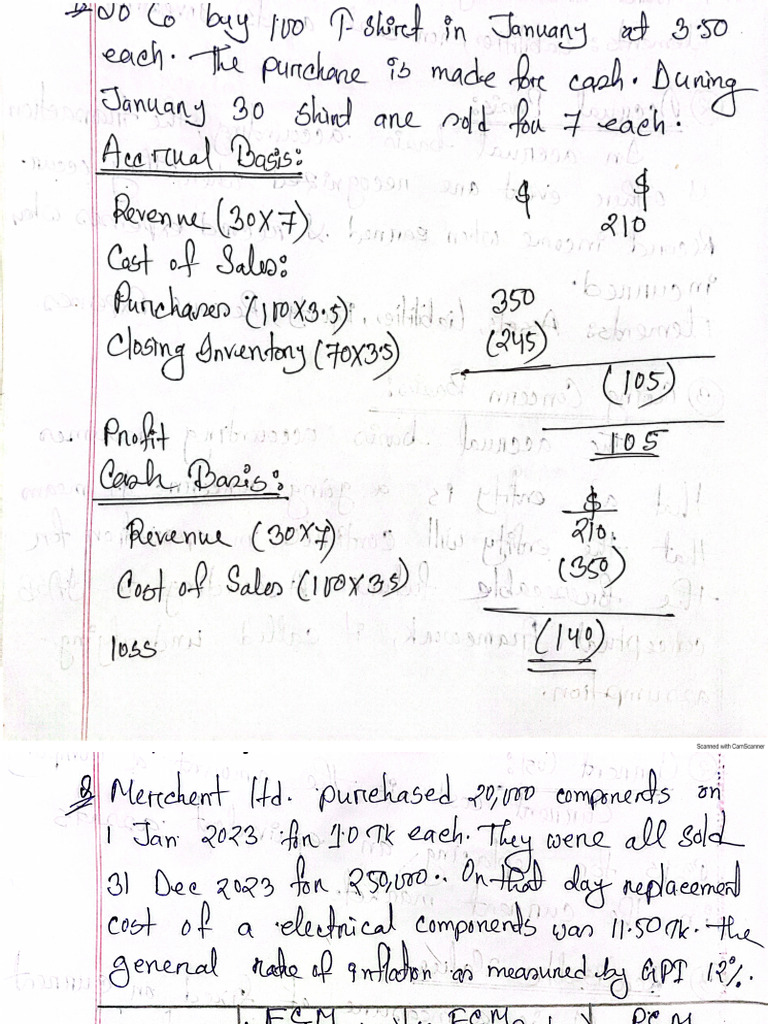 JO Co buy 100 T-shirt in January at 3.50
each. The purchase is made for cash. During
January 30 shird are sold for 7 each.
Accrual Basis:
$ $
Revenue (30X7) 210
Cost of Sales:
Purchases (100X3.5) 350
Closing Inventory (70X3.5) (245)
(105)
Profit 105
Cash Basis:
$
Revenue (30X7) 210
Cost of Sales (100X3.5) (350)
loss (140)
Scanned with CamScanner
Q Merchent ltd. purchased 20,000 components on
1 Jan 2023 for 10 Tk each. They were all sold
31 Dec 2023 for 250,000. On that day replacement
cost of a electrical components was 11.50 Tk. the
general rate of inflation as measured by GPI 12%.